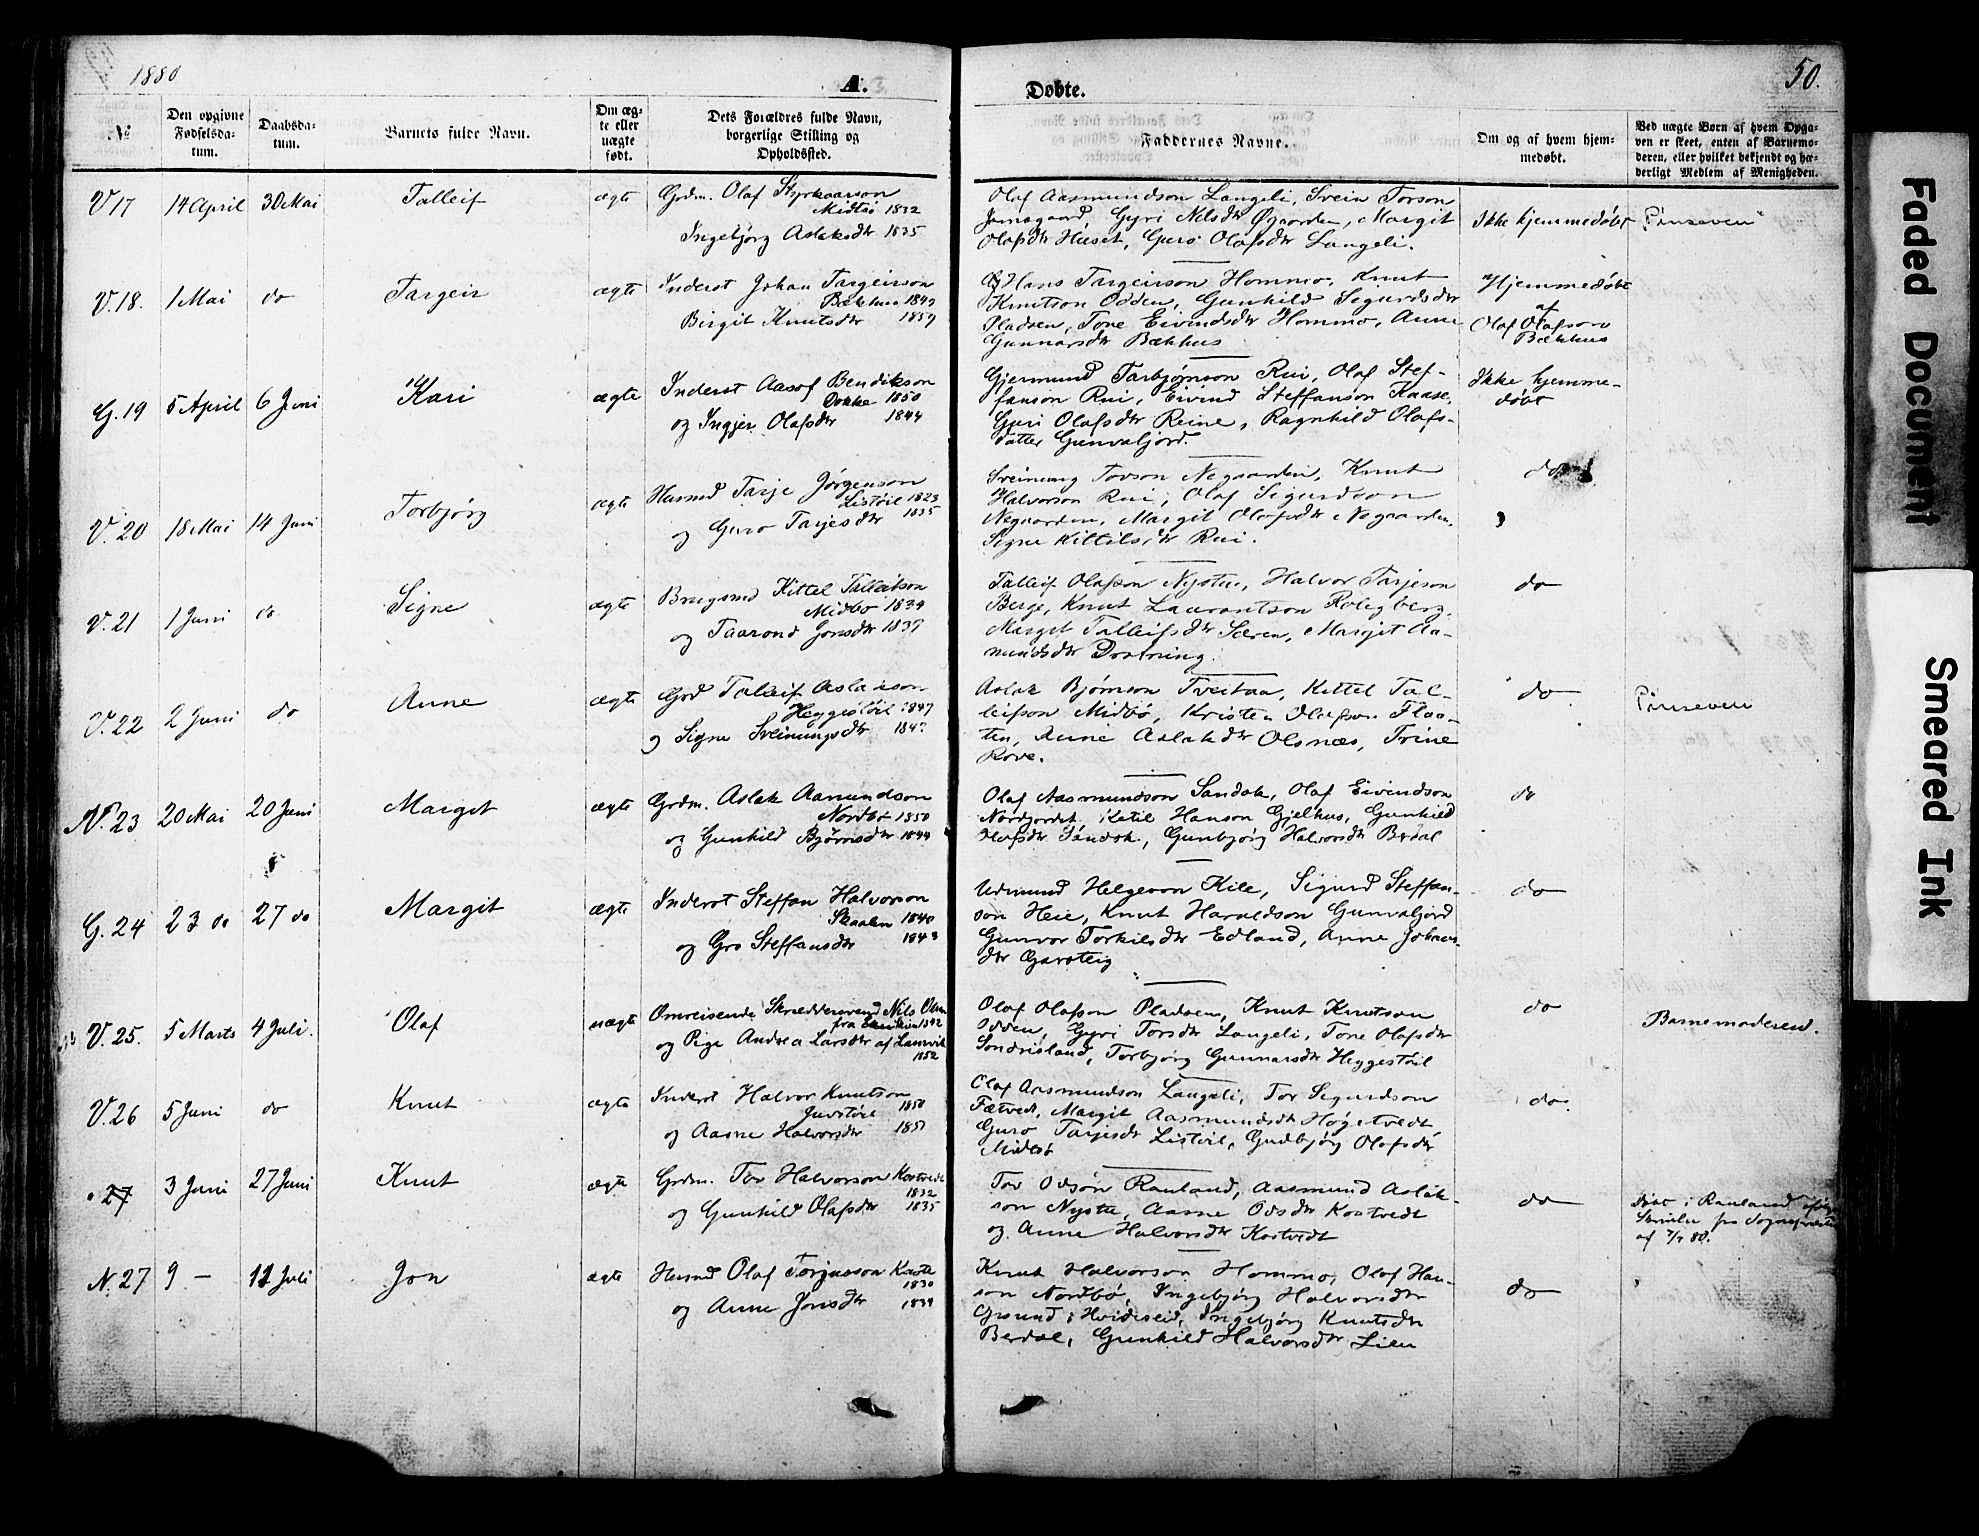 1880
A.
Døbte.
50.
№
Den opgivne Fødselsdatum.
Daabsdatum.
Barnets fulde Navn.
Om ægte eller uægte født.
Dets Forældres fulde Navn, borgerlige Stilling og Opholdssted.
Faddernes Navne.
Om og af hvem hjemmedøbt.
Ved uægte Børn af hvem Opgaven er skeet, enten af Barnemoderen, eller hvilket bekjendt og hæderligt Medlem af Menigheden.
V 17 14 April 30 Mai Talleif ægte Grdm. Olaf Styrkaarson
Midtbø 1832
Ingebjørg Aslaksdtr 1835
Olaf Aasmundson Langeli, Svein Torson
Gyri Nilsdtr Øgaarden, Margit
Olafsdtr Huset, Guro Olafsdtr Langeli.
Ikke hjemmedøbt
V. 18. 1 Mai do Targeir ægte Inderst Johan Targeirson
Bækhus
Birgit Knutsdtr
Hans Targeirson Hommo, Knut
Knutson Odden, Gunhild Segurdsdtr
Pladsen, Tone Eivindsdtr Hommo, Anne
Gunnarsdtr Bækhus
Hjemmedøbt
af
Olaf Olafson
Bækhus
G. 19 5 April 6 Juni Kari ægte Inderst Aasof Bendikson
1850
og Ingjer Olafsdtr 1844
Gjermund Tarbjørnson Rui, Olaf Stef-
fanson Rui, Eivind Steffanson Kaase,
Gyri Olafsdtr Reine, Ragnhild Olafs-
datter Gunvaljord.
Ikke hjemme-
døbt
V. 20 18 Mai 14 Juni Torbjørg ægte Husmd Tarje Jørgenson
Listøil 1823
og Guro Tarjesdtr 1835
Sveinung Tovson Negaarden, Knut
Halvorson Rui, Olaf Sigurdson
Negaarden, Margit Olafsdtr Negaarden,
Signe Kittilsdtr Rui.
do
V. 21 1 Juni do Signe ægte Brugsmd Kittel Talleifson
Midbø 1834
og Taarond Jonsdtr 1837
Talleif Olafson Nystu, Halvor Tarjeson
Berge, Knut Laurantson Rolegberg,
Margit Talleifsdtr Særen, Margit Aa-
mundsdtr Drotning.
do
V. 22 2 Juni do Anne ægte Grd Talleif Aslakson
Heggestøil 1847
og Signe Sveinungsdtr
Aslak Bjørnson Tveitaa, Kittel Tal-
leifson Midbø, Kristen Olafson Flaa-
ten, Anne Aslakdtr Olsnæs, Trine
Rove.
do
N. 23 20 Mai 20 Juni Margit ægte Grdm. Aslak Aamundson
Nordbø 1850
og Gunhild Bjørnsdtr 1844
Olaf Aasmundson Sandok, Olaf Eivindson
Nordjordet, Ketil Hanson Gjelhus, Gunhild
Olafsdtr Sandok, Gunbjørg Halvorsdtr Berdal
do
G. 24 23 do 27 do Margit ægte Inderst Steffan Halvorson
Skaalen 1840
og Gro Steffansdtr 1843
Helgeson Kile, Sigurd Steffan-
son Heie, Knut Haraldson Gunvaljord
Gunvor Torkilsdtr Edland, Anne Johans-
dtr Garsteig
do
V. 25. 5 Marts 4 Juli. Olaf uægte Omreisende Skræddersvend Nils
og Pige Andrea Larsdtr af Laurvik
1852
Olaf Olafson Pladsen, Knut Knutson
Odden, Gyri Torsdtr Langeli, Tone Olafsdtr
Sondresland, Torbjørg Gunnarsdtr Heggestøil
do
Barnemoderen.
V. 26 5 Juni do Knut ægte Inderst Halvor Knutson
Juvstøil 1850
og Aasne Halvorsdtr
Olaf Aasmundson Langeli, Tor Segurdson
Fætvedt, Margit Aasmundsdt Høgetvedt
Guro Tarjesdt Listøil, Gudbjørg Olafsdtr
Midbø
do.
27 3 Juni 27 Juni Knut ægte Grdm. Tov Halvorson Kostvedt
1832
og Gunhild Olafsdtr 1835
Tov Odson Rauland, Aasmund Aslak-
son Nystu, Aasne Odsdtr Kostvedt
og Anne Halvorsdtr Kostvedt
do
Døbt i Rauland ifølge
Skrivelse fra Sognepræsten
af 7/7 80.
N. 27 9 — 11 Juli Jon ægte Husmd Olaf Torjusson
1830
og Anne Jonsdtr 1839
Knut Halvorson Hommo, Olaf Han-
son Nordbø, Ingebjørg Halvorsdtr
Grsund i Hvideseid, Ingebjørg Knutsdtr
Berdal, Gunhild Halvorsdtr Lien
do
Faded Document
Smeared Ink